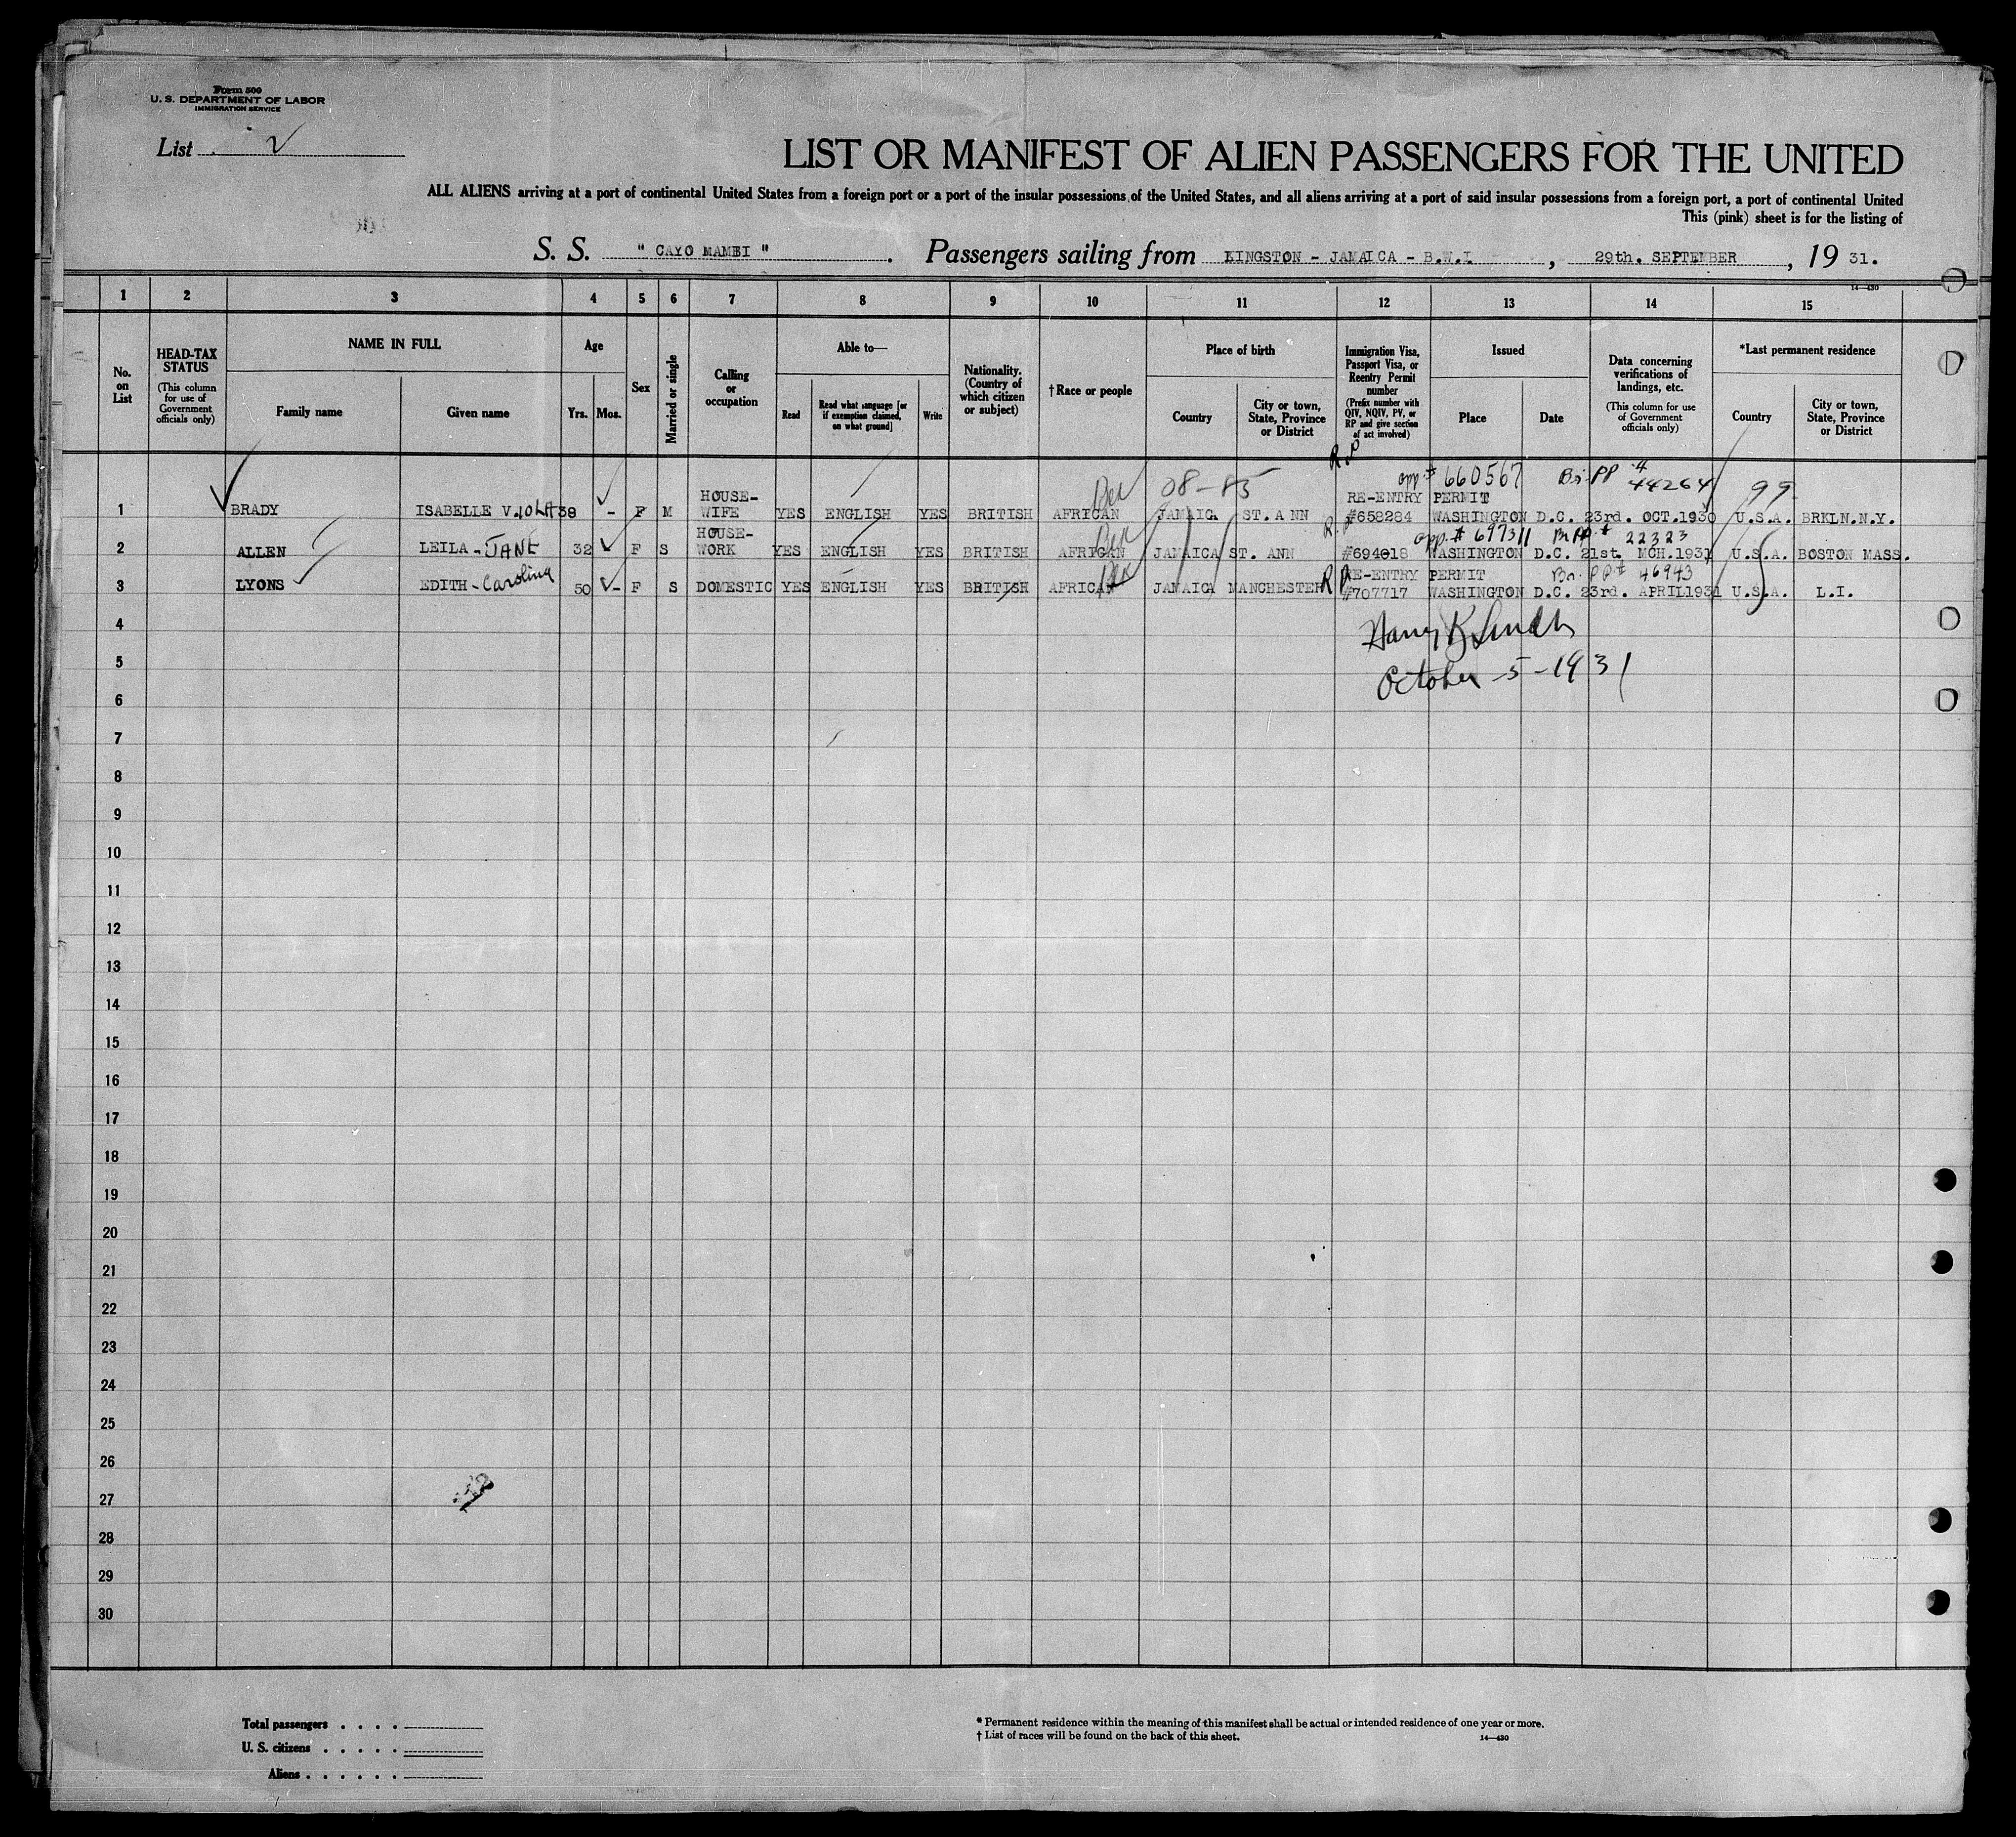 Form 500
U. S. DEPARTMENT OF LABOR
IMMIGRATION SERVICE
List 2
LIST OR MANIFEST OF ALIEN PASSENGERS FOR THE UNITED
ALL ALIENS arriving at a port of continental United States from a foreign port or a port of the insular possessions of the United States, and all aliens arriving at a port of said insular possessions from a foreign port, a port of continental United
This (pink) sheet is for the listing of
S. S. " CAYO MAMBI " . Passengers sailing from KINGSTON - JAMAICA - B.W.I , 29th. SEPTEMBER , 19 31.
14—430
1 2 3 4 5 6 7 8 9 10 11 12 13 14 15
No. on List
HEAD-TAX STATUS
(This column for use of Government officials only)
NAME IN FULL
Family name
Given name
Age
Yrs. Mos.
Sex
Married or single
Calling or occupation
Able to—
Read
Read what language [or if exemption claimed, on what ground]
Write
Nationality. (Country of which citizen or subject)
† Race or people
Place of birth
Country
City or town, State, Province or District
Immigration Visa, Passport Visa, or Reentry Permit number
(Prefix number with QIV, NQIV, PV, or RP and give section of act involved)
Issued
Place
Date
Data concerning verifications of landings, etc.
(This column for use of Government officials only)
*Last permanent residence
Country
City or town, State, Province or District
R.P app. # 660567 Br. PP # 44264
08-85 99
HOUSE- RE-ENTRY PERMIT
1 BRADY ISABELLE V.IOLA 38 - F M WIFE YES ENGLISH YES BRITISH AFRICAN JAMAICA ST. ANN #658284 WASHINGTON D.C. 23rd. OCT.1930 U.S.A. BRKLN.N.Y.
HOUSE- R.P app. # 697311 Br PP # 22323
2 ALLEN LEILA - JANE 32 F S WORK YES ENGLISH YES BRITISH AFRICAN JAMAICA ST. ANN #694018 WASHINGTON D.C. 21st. MCH.1931 U.S.A. BOSTON MASS.
RE-ENTRY PERMIT Br. PP # 46943
3 LYONS EDITH - Carolina 50 - F S DOMESTIC YES ENGLISH YES BRITISH AFRICAN JAMAICA MANCHESTER RP #707717 WASHINGTON D.C. 23rd. APRIL1931 U.S.A. L.I.
4
October -5-1931
5
6
7
8
9
10
11
12
13
14
15
16
17
18
19
20
21
22
23
24
25
26
27
28
29
30
Total passengers . . . .
U. S. citizens . . . . .
Aliens . . . . . .
* Permanent residence within the meaning of this manifest shall be actual or intended residence of one year or more.
† List of races will be found on the back of this sheet.
14—430